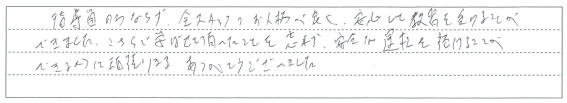 指導員のみならず、全スタッフの お人柄が良く、安心して教習を受けることが
できました。こちらで学ばせて頂いたことを忘れず、安全な運転を続けることが
できるように頑張ります。ありがとうございました